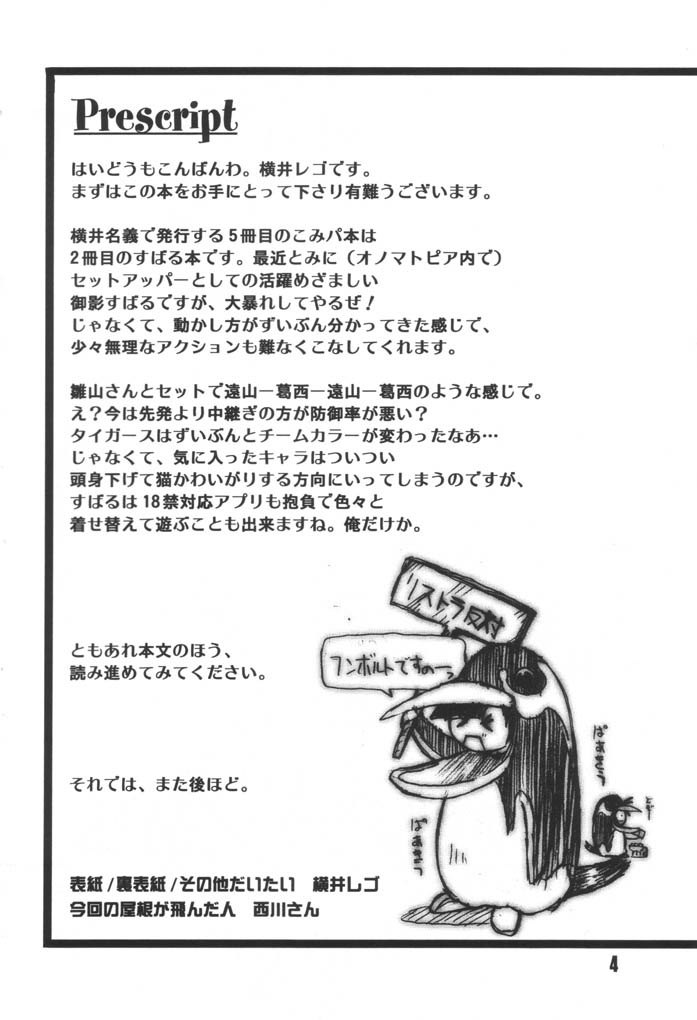 Prescript
はいどうもこんばんわ。横井レゴです。
まずはこの本をお手にとって下さり有難うございます。
横井名義で発行する5冊目のこみパ本は
2冊目のすばる本です。最近とみに（オノマトピア内で）
セットアッパーとしての活躍めざましい
御影すばるですが、大暴れしてやるぜ！
じゃなくて、動かし方がずいぶん分かってきた感じで、
少々無理なアクションも難なくこなしてくれます。
雛山さんとセットで遠山ー葛西ー遠山ー葛西のような感じで。
え？今は先発より中継ぎの方が防御率が悪い？
タイガースはずいぶんとチームカラーが変わったなあ…
じゃなくて、気に入ったキャラはついつい
頭身下げて猫かわいがりする方向にいってしまうのですが、
すばるは18禁対応アプリも抱負で色々と
着せ替えて遊ぶことも出来ますね。俺だけか。
リストラ反対
フンボルトですのーっ
ともあれ本文のほう、
読み進めてみてください。
ぱぁぎぅ
ぱぁぎぅ
それでは、また後ほど。
表紙/裏表紙/その他だいたい　横井レゴ
今回の屋根が飛んだ人　西川さん
4